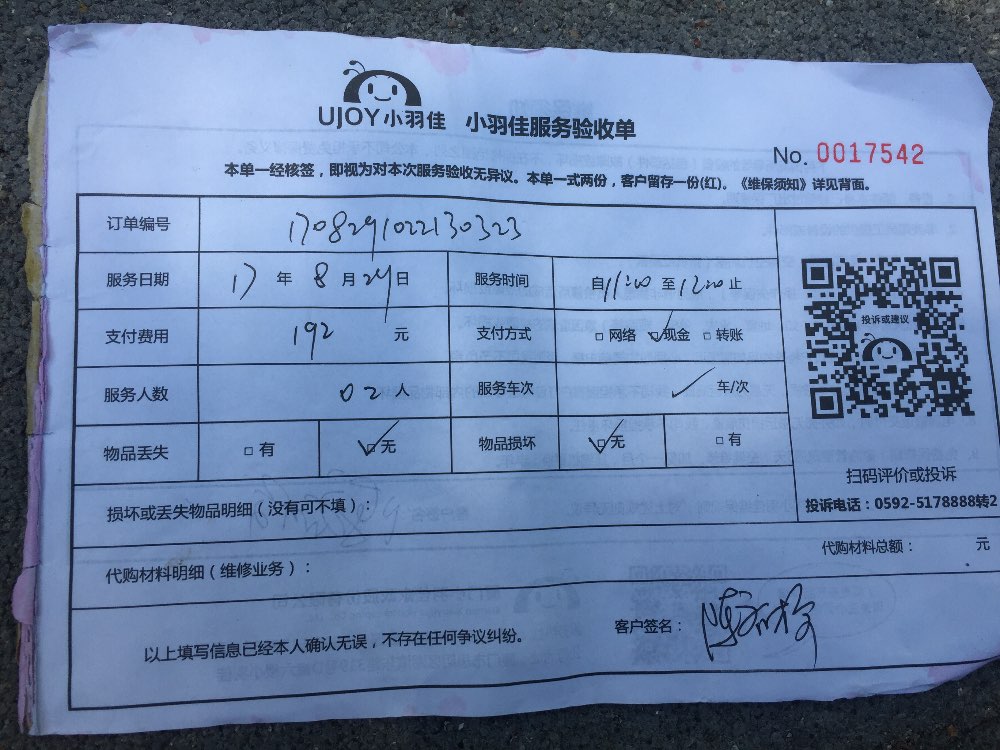 UJOY小羽佳 小羽佳服务验收单
No. 0017542
本单一经核签，即视为对本次服务验收无异议。本单一式两份，客户留存一份(红)。《维保须知》详见背面。
订单编号 1708291022130323
服务日期 17 年 8 月 29 日 服务时间 自 11:00 至 12:00 止
支付费用 192 元 支付方式 □网络 ☑现金 □转账
服务人数 02 人 服务车次 ✓ 车/次
物品丢失 □有 ☑无 物品损坏 ☑无 □有
投诉或建议
扫码评价或投诉
投诉电话：0592-5178888转2
损坏或丢失物品明细（没有可不填）：
代购材料明细（维修业务）： 代购材料总额： 元
以上填写信息已经本人确认无误，不存在任何争议纠纷。 客户签名：